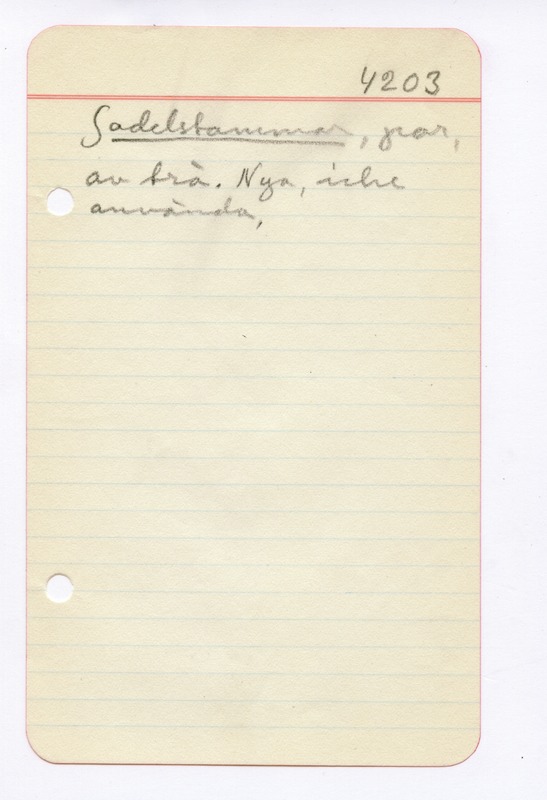 4203
Sadelstommar, par,
av trä. Nya, icke
använda,